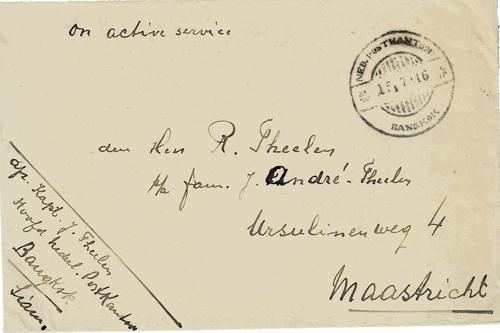 On active service
NED. POSTKANTOOR
15.7.16
BANGKOK
den Heer R. Theelen
p/a fam. J. André-Theelen
Ursulinenweg 4
Maastricht
afz. Kapt. J. Theelen
Hoofd Nederl. Postkantoor
Bangkok
Siam.